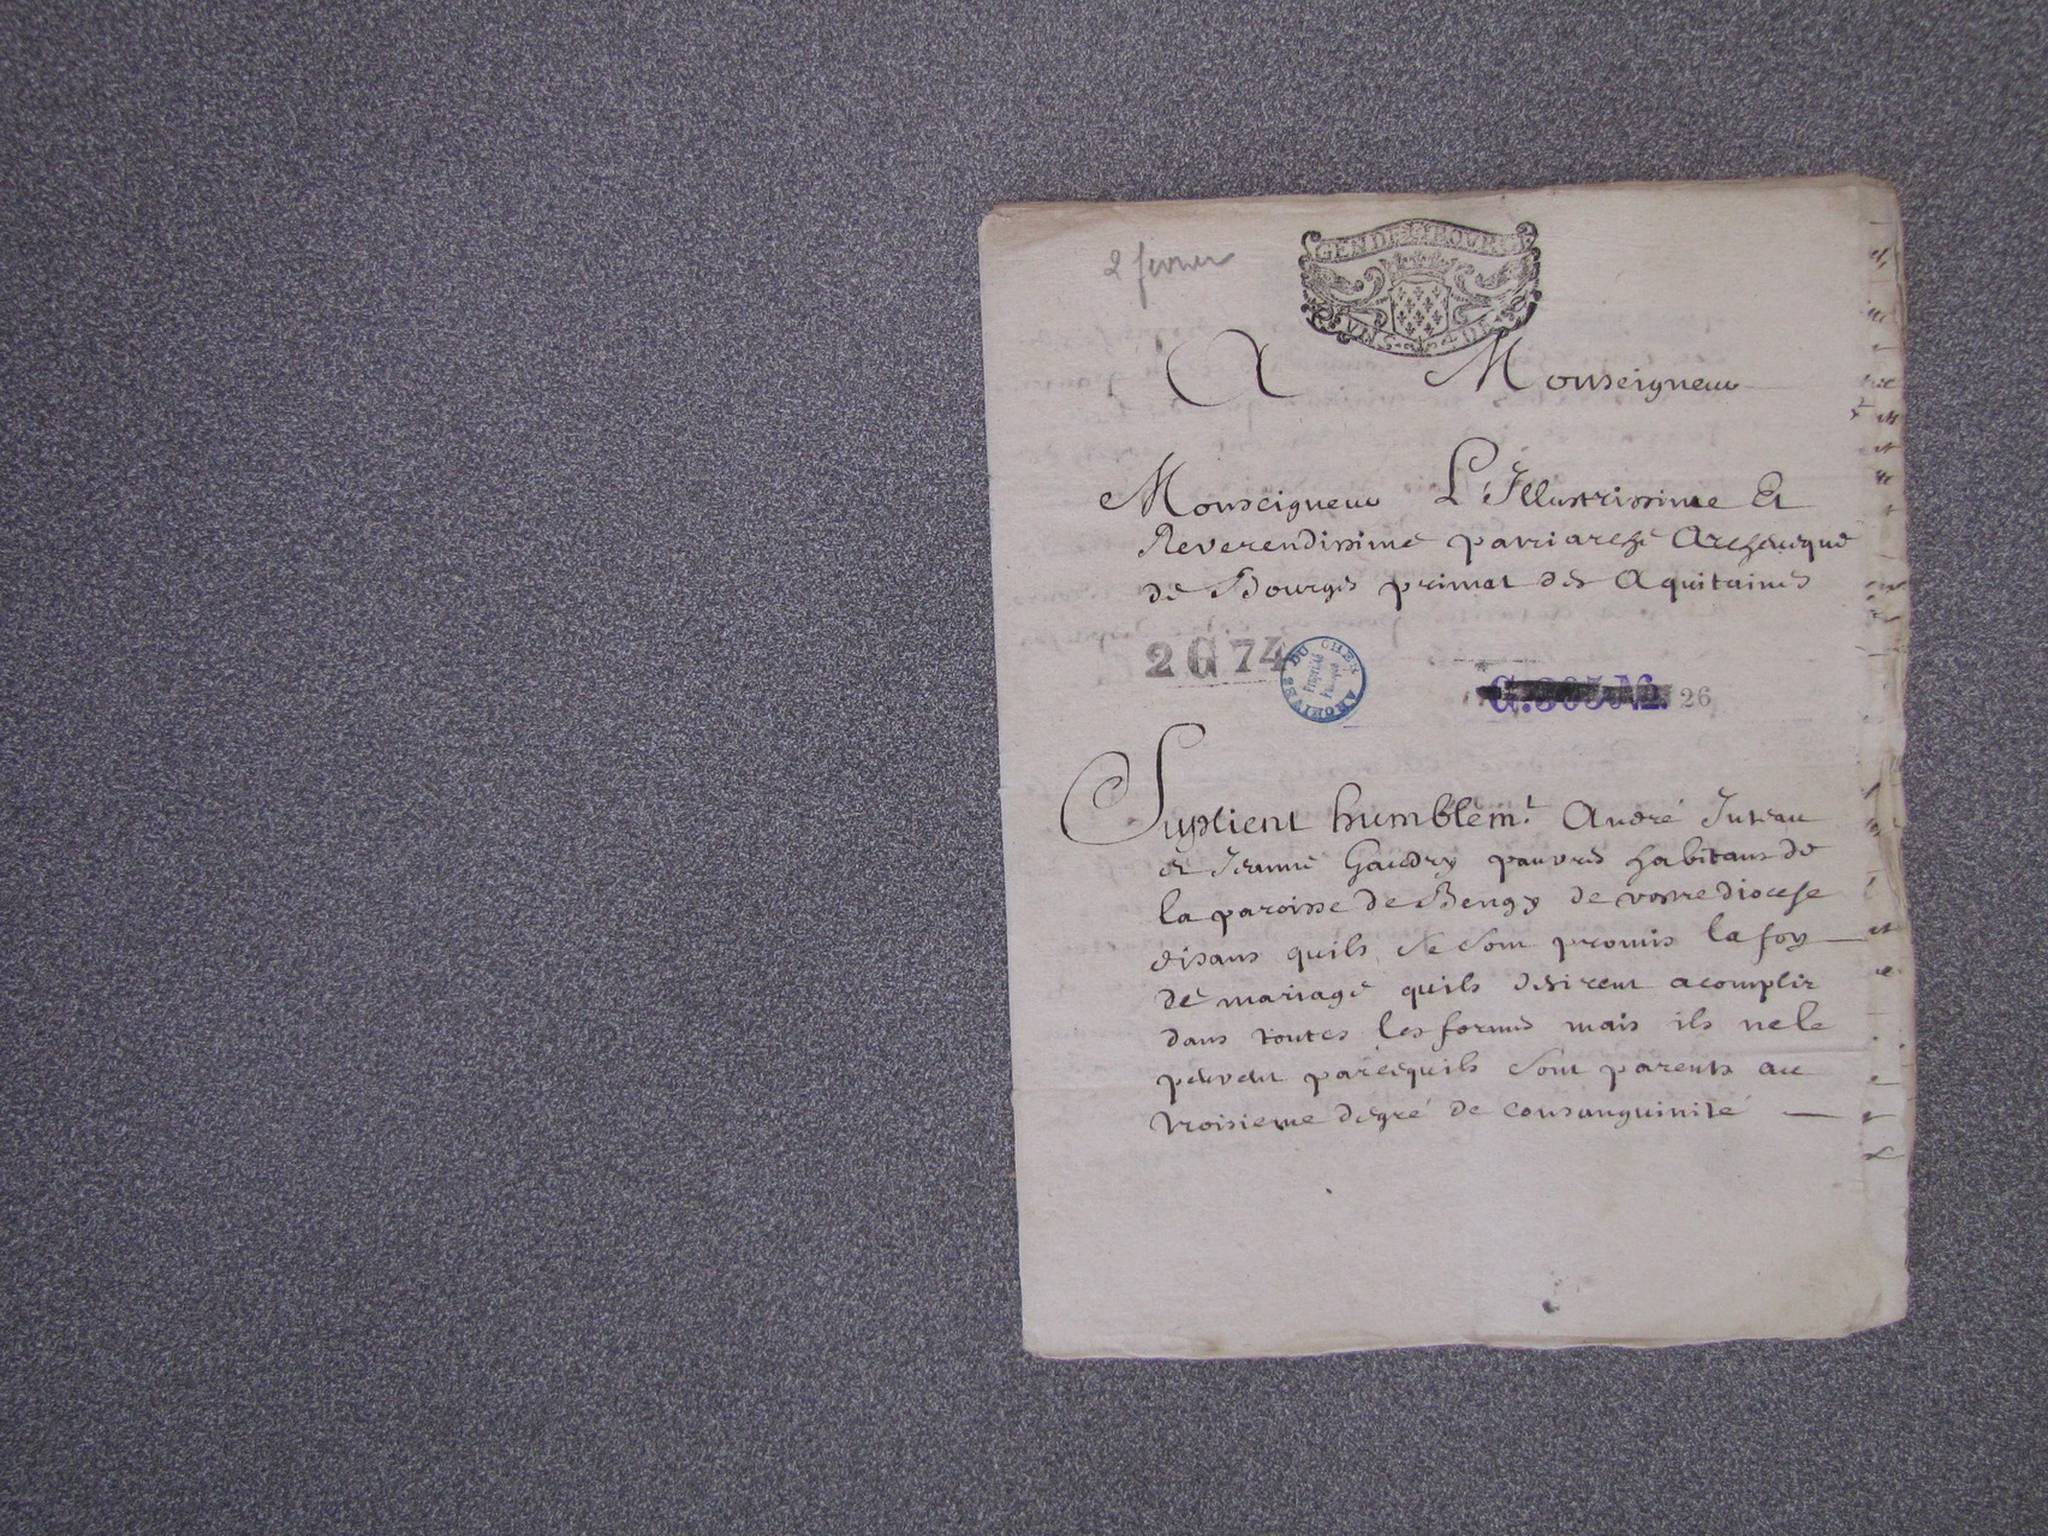 2 fevrier
GEN DE BOVRGES
VN SOL
A Monseigneur
Monseigneur L'Illustrissime Et
Reverendissime patriarche Archevesque
de Bourges primat des Aquitaines
2 G 74
ARCHIVES DU CHER
26
Suplient humblemt. André Juteau
et Jeanne Gaudry pauvres habitans de
la paroisse de Bengy de vostre diocese
disans quils se sont promis la foy
de mariage quils desirent acomplir
dans toutes les formes mais ils ne le
peuvent parcequils sont parents au
troisieme degré de consanguinité